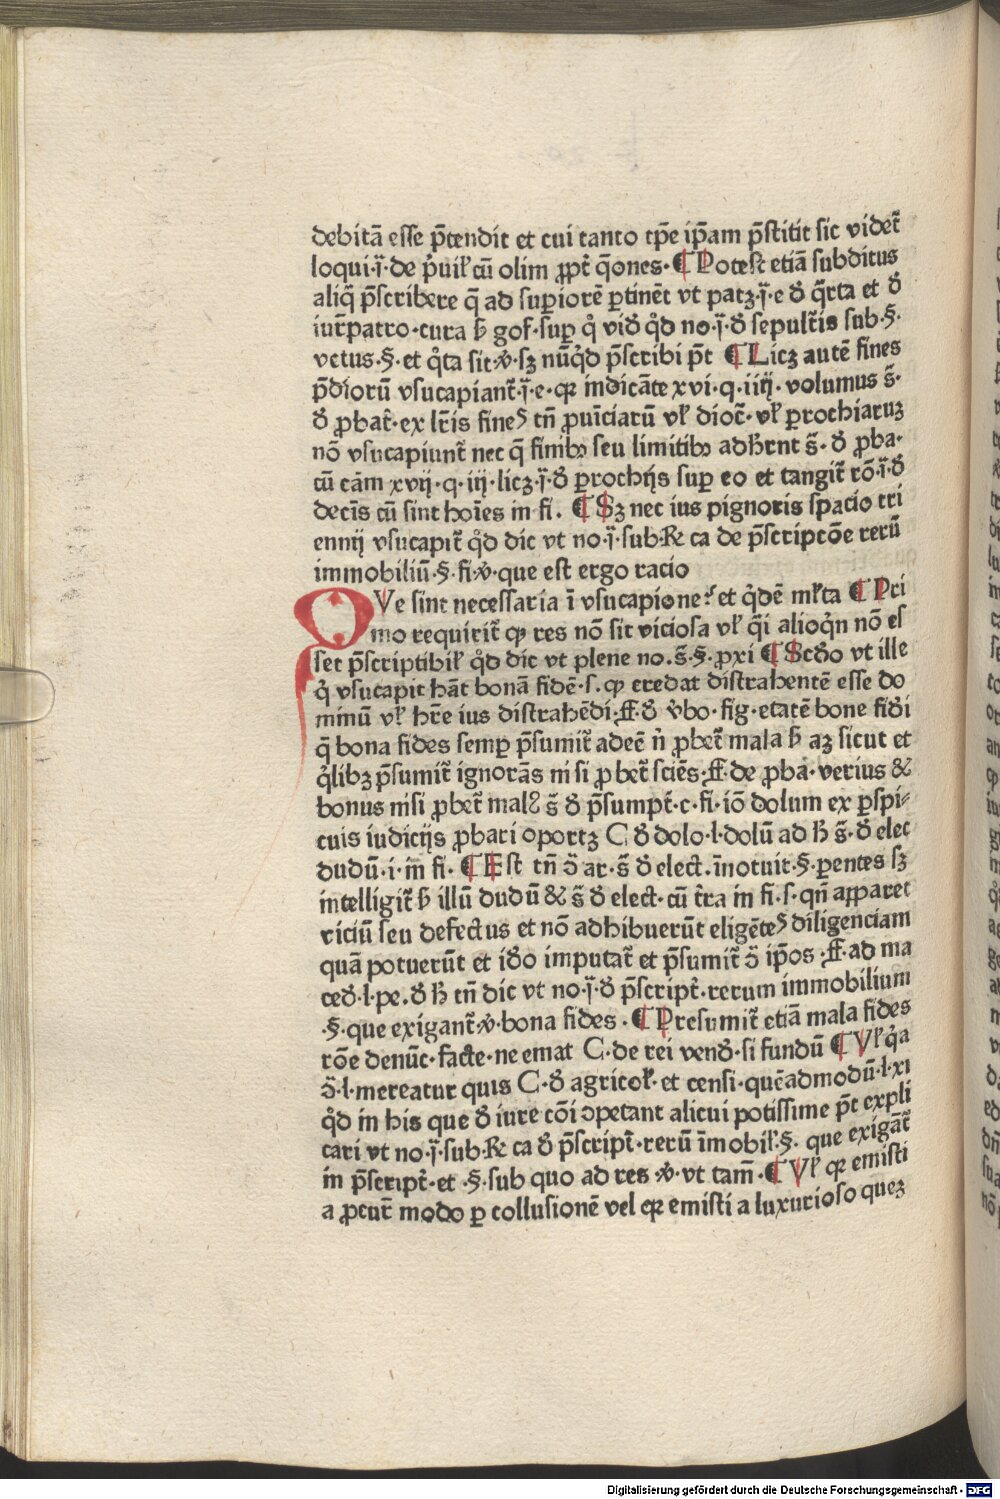 debitā esse p̄tendit et cui tanto tp̄e ip̄am p̄stitit sic videt᷑
loqui·j̄·de p̄uil̕ cū olim ꝓpt̕ q̄ones·¶Potest etiā subditus
aliq̄ p̄scribere q̄ ad suꝑiorē ꝑtinēt vt patꝫ·j̄·e ꝺ̕ q̄rta et ꝺ̕
iur̄patro·cura ƀ gof·suꝑ q̊ viꝺ̕ q̊d no·j̄·ꝺ̕ sepult̄is sub·§·
vctus·§·et q̊ta sit·v̕·sꝫ nūq̊d p̄scribi p̄t ¶Licꝫ autē fines
p̄diorū vsucapiant᷑·j̄·e·ꝙ indicāte xvi·q·iiij·volumus s̄·
ꝺ̕ ꝓbat̕·ex lr̄is fineꝰ tn̄ ꝓuīciarū vl̕ dioc̄·vl̕ ꝑrochiaruꝫ
nō vsucapiunt᷑ nec q̄ finibꝫ seu limitibꝫ adhr̄nt s̄·ꝺ̕ ꝓba·
cū cām xvij·q·iij·licꝫ·j̄·ꝺ̕ ꝑrochijs suꝑ eo et tangit᷑ rō·j̄·ꝺ̕
decīs cū sint hoīes in fi. ¶Sꝫ nec ius pignoris spacio tri
ennij vsucapit᷑ q̊d dic vt no·j̄·sub·℞ca de p̄scriptōe rerū
immobiliū·§·fi·v̕·que est ergo racio
QVe sint necessaria ī vsucapione᷑ et q̊dē ml̕ta ¶Pri
mo requirit᷑ ꝙ res nō sit viciosa vl̕ q̄i alioq̊n nō es
set p̄scriptibil̕ q̊d dic vt plene no.s̄.§.ꝓxi ¶Scꝺ̕o vt ille
q̊ vsucapit hāt bonā fidē·s.ꝙ credat distrahentē esse do
minū vl̕ hr̄e ius distrahēdi·ff·ꝺ̕ v̄bo·fig·etatē bone fiꝺ̕i
q̄ bona fides semꝑ p̄sumit᷑ adeē n̄ ꝓbet᷑ mala ƀ aꝫ sicut et
q̊libꝫ p̄sumit᷑ ignorās nisi ꝓbet᷑ sciēs·ff·de ꝓba·verius &
bonus nisi ꝓbet᷑ malꝰ s̄ ꝺ̕ p̄sumpt̕·c·fi·iō dolum ex ꝑspi⸗
cuis iudicijs ꝓbari oportꝫ C ꝺ̕ dolo·l·dolū ad ƀ s̄·ꝺ̕ elec
dudū·i·in fi. ¶Est tn̄ ↄ̄ ar·s̄ ꝺ̕ elect.īnotuit·§·ꝑentes sꝫ
intelligit᷑ ƀ illū dudū & s̄ ꝺ̕ elect·cū t̄ra in fi·s·qn̄ aꝑparet
viciū seu defectus et nō adhibuerūt eligēteꝰ diligenciam
quā potuerūt et iꝺ̕o imputat᷑ et p̄sumit᷑ ↄ̄ ip̄os·ff·ad ma
ceꝺ̕·l·pe.ꝺ̕ ƀ tn̄ dic vt no·j̄·ꝺ̕ p̄script̕·rerum immobilium
·§·que exigant᷑·v̕·bona fides·¶Presumit᷑ etiā mala fides
rōe denūc·facte·ne emat C·de rei venꝺ̕·si fundū ¶Vl̕ q̊a
ↄ̄·l·mereatur quis C·ꝺ̕ agricol̕·et censi·quēadmodū·l·xi
q̊d in his que ꝺ̕ iure cōi ↄpetant alicui potissime p̄t expli
cari vt no·j̄·sub·℞ca ꝺ̕ p̄script̕·rerū īmobil̕·§·que exigāt᷑
in p̄script̕·et·§·sub quo ad res·v̕·vt tam̄·¶Vl̕ ꝙ emisti
a ꝓcut̄ modo ꝑ collusionē vel ꝙ emisti a luxurioso queꝫ
Digitalisierung gefördert durch die Deutsche Forschungsgemeinschaft - DFG